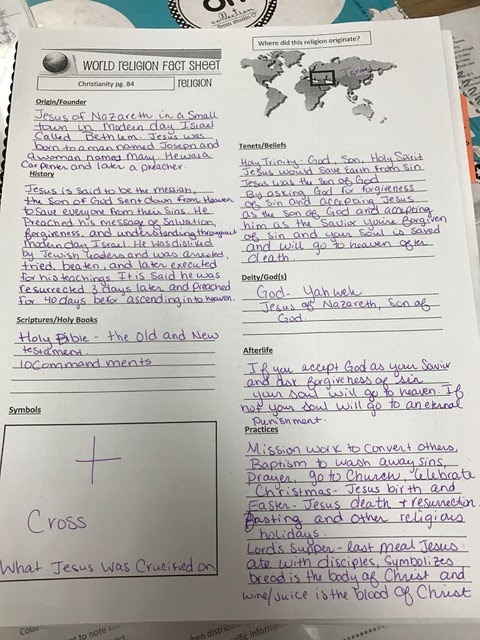 WORLD RELIGION FACT SHEET
Christianity pg. 84
RELIGION
Origin/Founder
Jesus of Nazareth in a Small
town in Modern day Israel
Called Bethlem. Jesus was
born to a man named Joseph and
a woman named Mary. He was a
Carpenter and later a preacher.
History
Jesus is said to be the messiah,
the son of God sent down from Heaven
to save everyone from their Sins. He
Preached his message of Salvation,
forgiveness, and understanding throughout
modern day Israel. He was disliked
by Jewish leaders and was arrested,
tried, beaten, and later executed
for his teachings. It is said he was
resurrected 3 days later and preached
for 40 days befor ascending into heaven.
Scriptures/Holy Books
Holy Bible - the Old and New
testament.
10 Command ments
Symbols
Cross
What Jesus Was Crucified on
Where did this religion originate?
Israel
Tenets/Beliefs
Holy Trinity - God, Son, Holy Spirit
Jesus would save Earth from sin
Jesus was the son of God
By asking God for forgiveness
of sin and accepting Jesus
as the son of God and accepting
him as the Savior you're forgiven
of sin and your Soul is saved
and will go to heaven after
death.
Deity/God(s)
God - Yahweh
Jesus of Nazareth, son of
God.
Afterlife
If you accept God as your Savior
and ask forgiveness of sin
your soul will go to heaven. If
not your soul will go to an eternal
Punishment.
Practices
Mission work to convert others,
Baptism to wash away sins,
Prayer, go to Church, Celebrate
Christmas - Jesus birth and
Easter - Jesus death + resurrection.
Fasting and other religious
holidays.
Lords Supper - last meal Jesus
ate with disciples, Symbolizes
bread is the body of Christ and
wine/juice is the blood of Christ